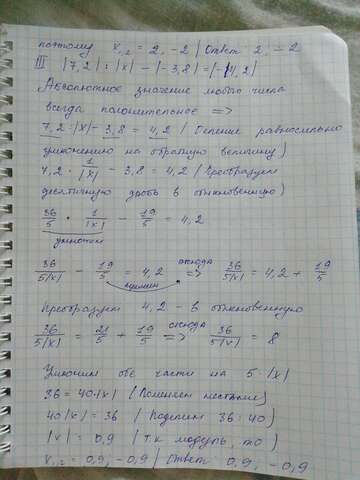 поэтому x₁,₂ = 2, -2 | Ответ 2, -2
III |7,2| : |x| - |-3,8| = |-4,2|
Абсолютное значение любого числа
всегда положительное =>
7,2 : |x| - 3,8 = 4,2 ( Деление равносильно
умножению на обратную величину)
7,2 · 1/|x| - 3,8 = 4,2 (Преобразуем
десятичную дробь в обыкновенную)
36/5 · 1/|x| - 19/5 = 4,2
умножим
36/5|x| - 19/5 = 4,2 отсюда => 36/5|x| = 4,2 + 19/5
Преобразуем 4,2 - в обыкновенную
36/5|x| = 21/5 + 19/5 отсюда => 36/5|x| = 8
Умножим обе части на 5·|x|
36 = 40·|x| ( Поменяем местами)
40|x| = 36 ( Поделим 36 : 40)
|x| = 0,9 ( т.к модуль, то)
x₁,₂ = 0,9, -0,9 | Ответ 0,9, -0,9